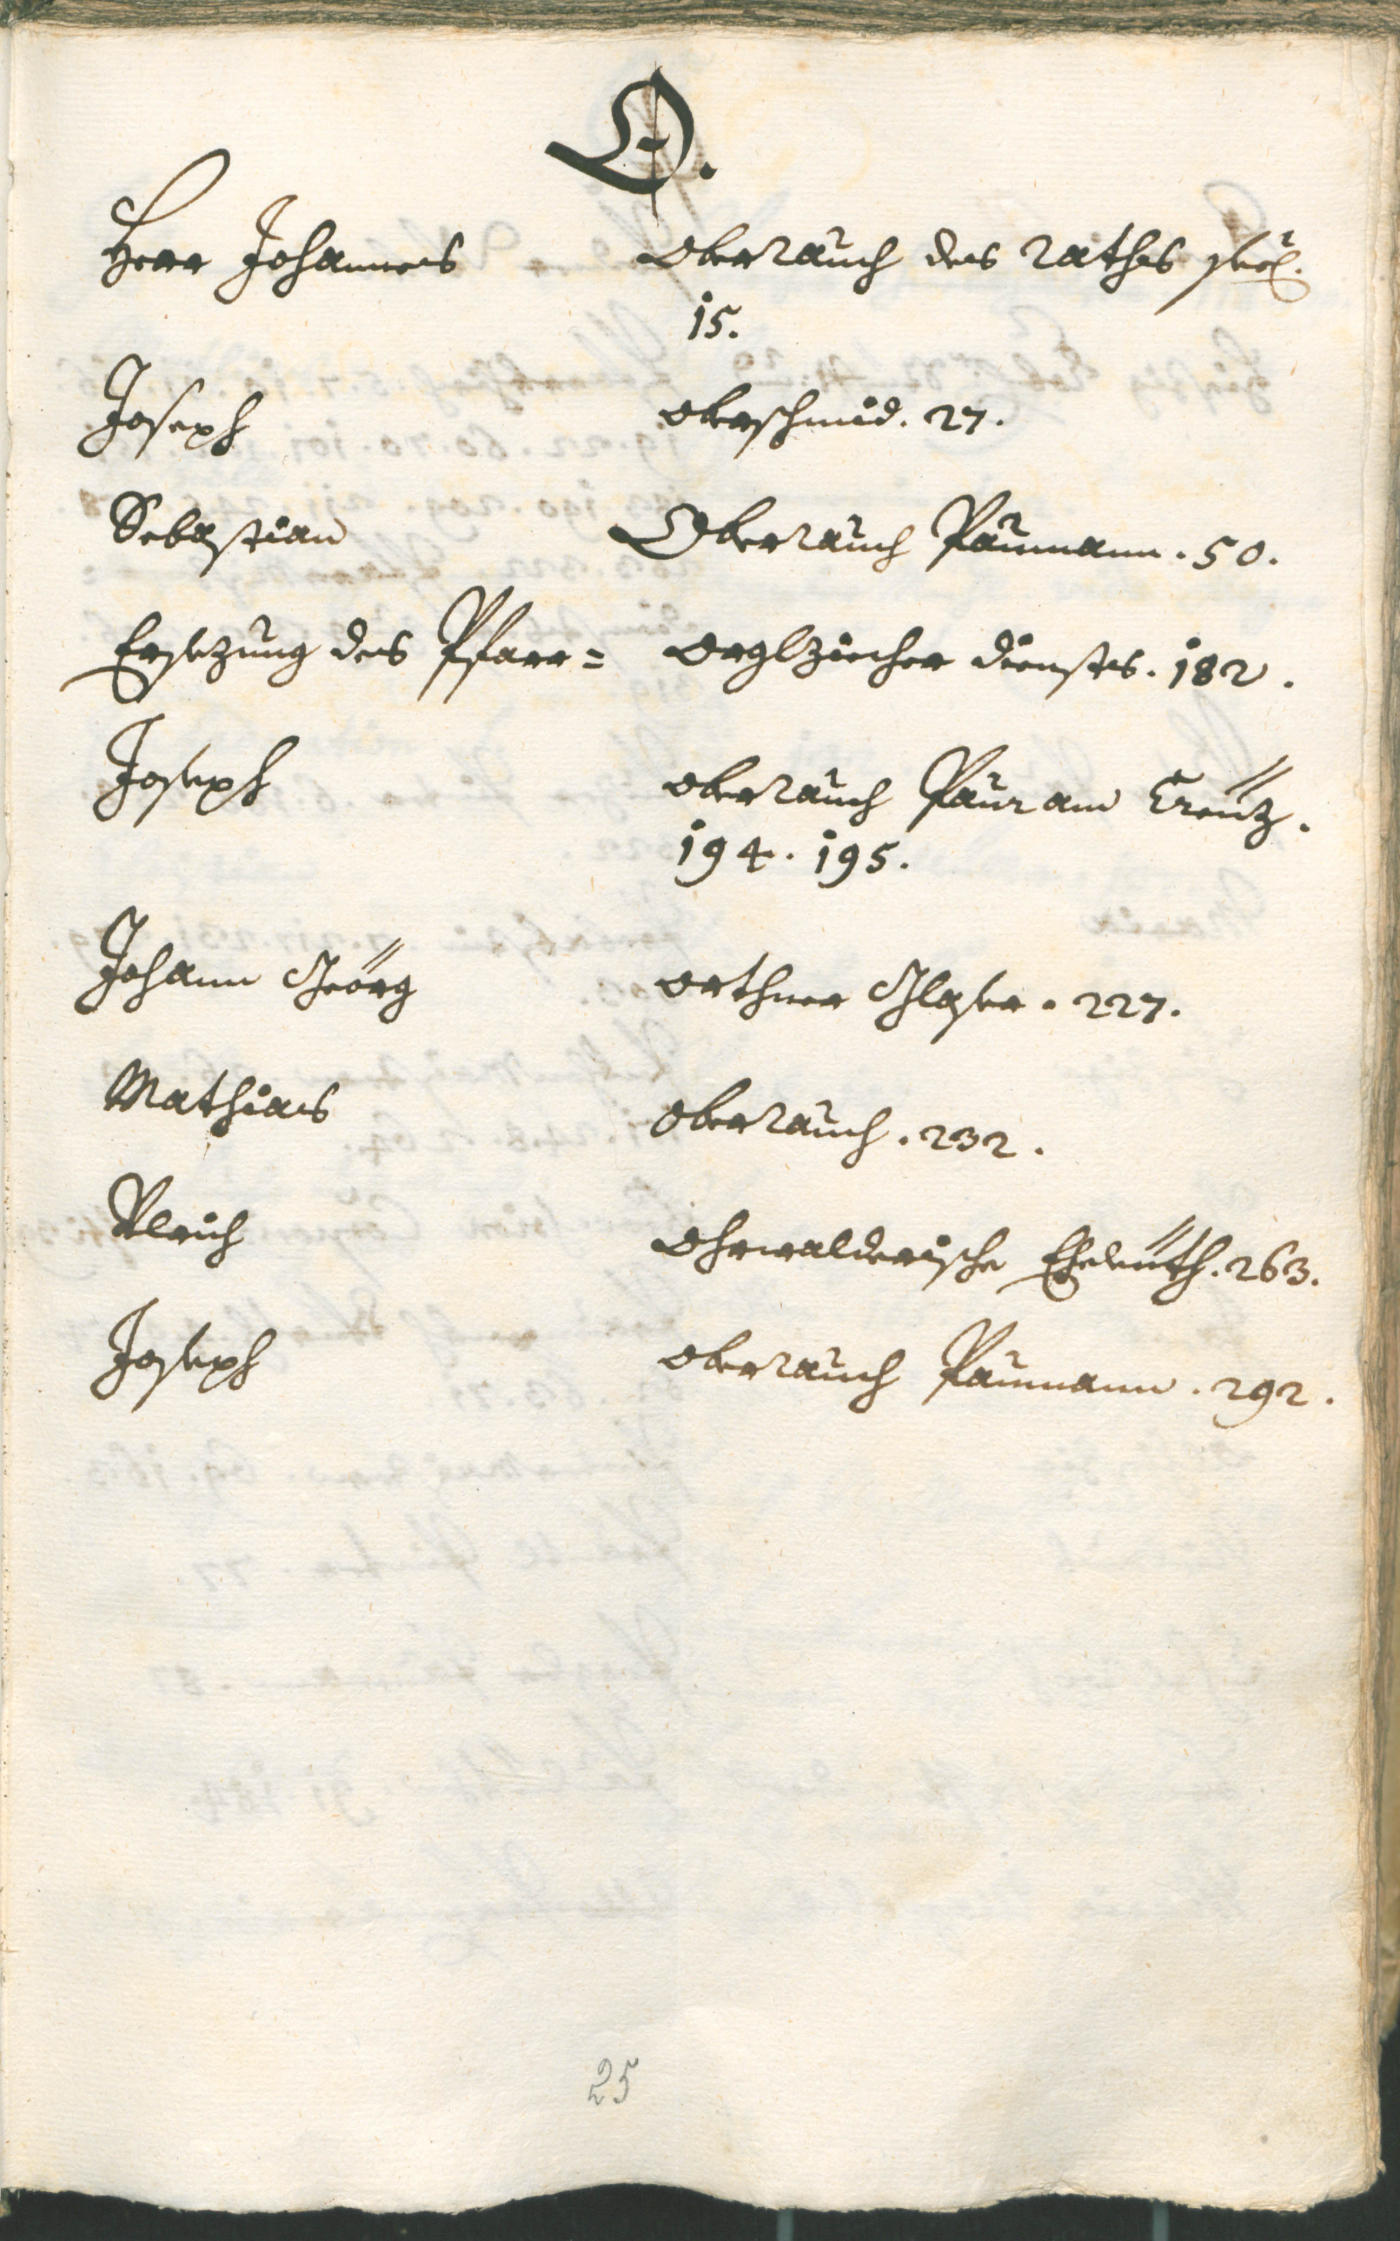 O.
Herr Johannes Oberrauch des raths
15.
Joseph oberschmid. 27.
Sebastian Oberrauch Paumann. 50.
Ersezung des Pfarr= orglziecher diensts. 182.
Joseph oberrauch Paur am Creütz.
194. 195.
Johann Geörg orthner Glaser. 227.
Mathias oberrauch. 232.
Vlrich ohrwalderische Eheleüth. 263.
Joseph oberrauch Paumann. 292.
25